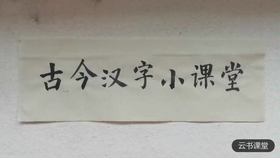 古今汉字小课堂
云书课堂